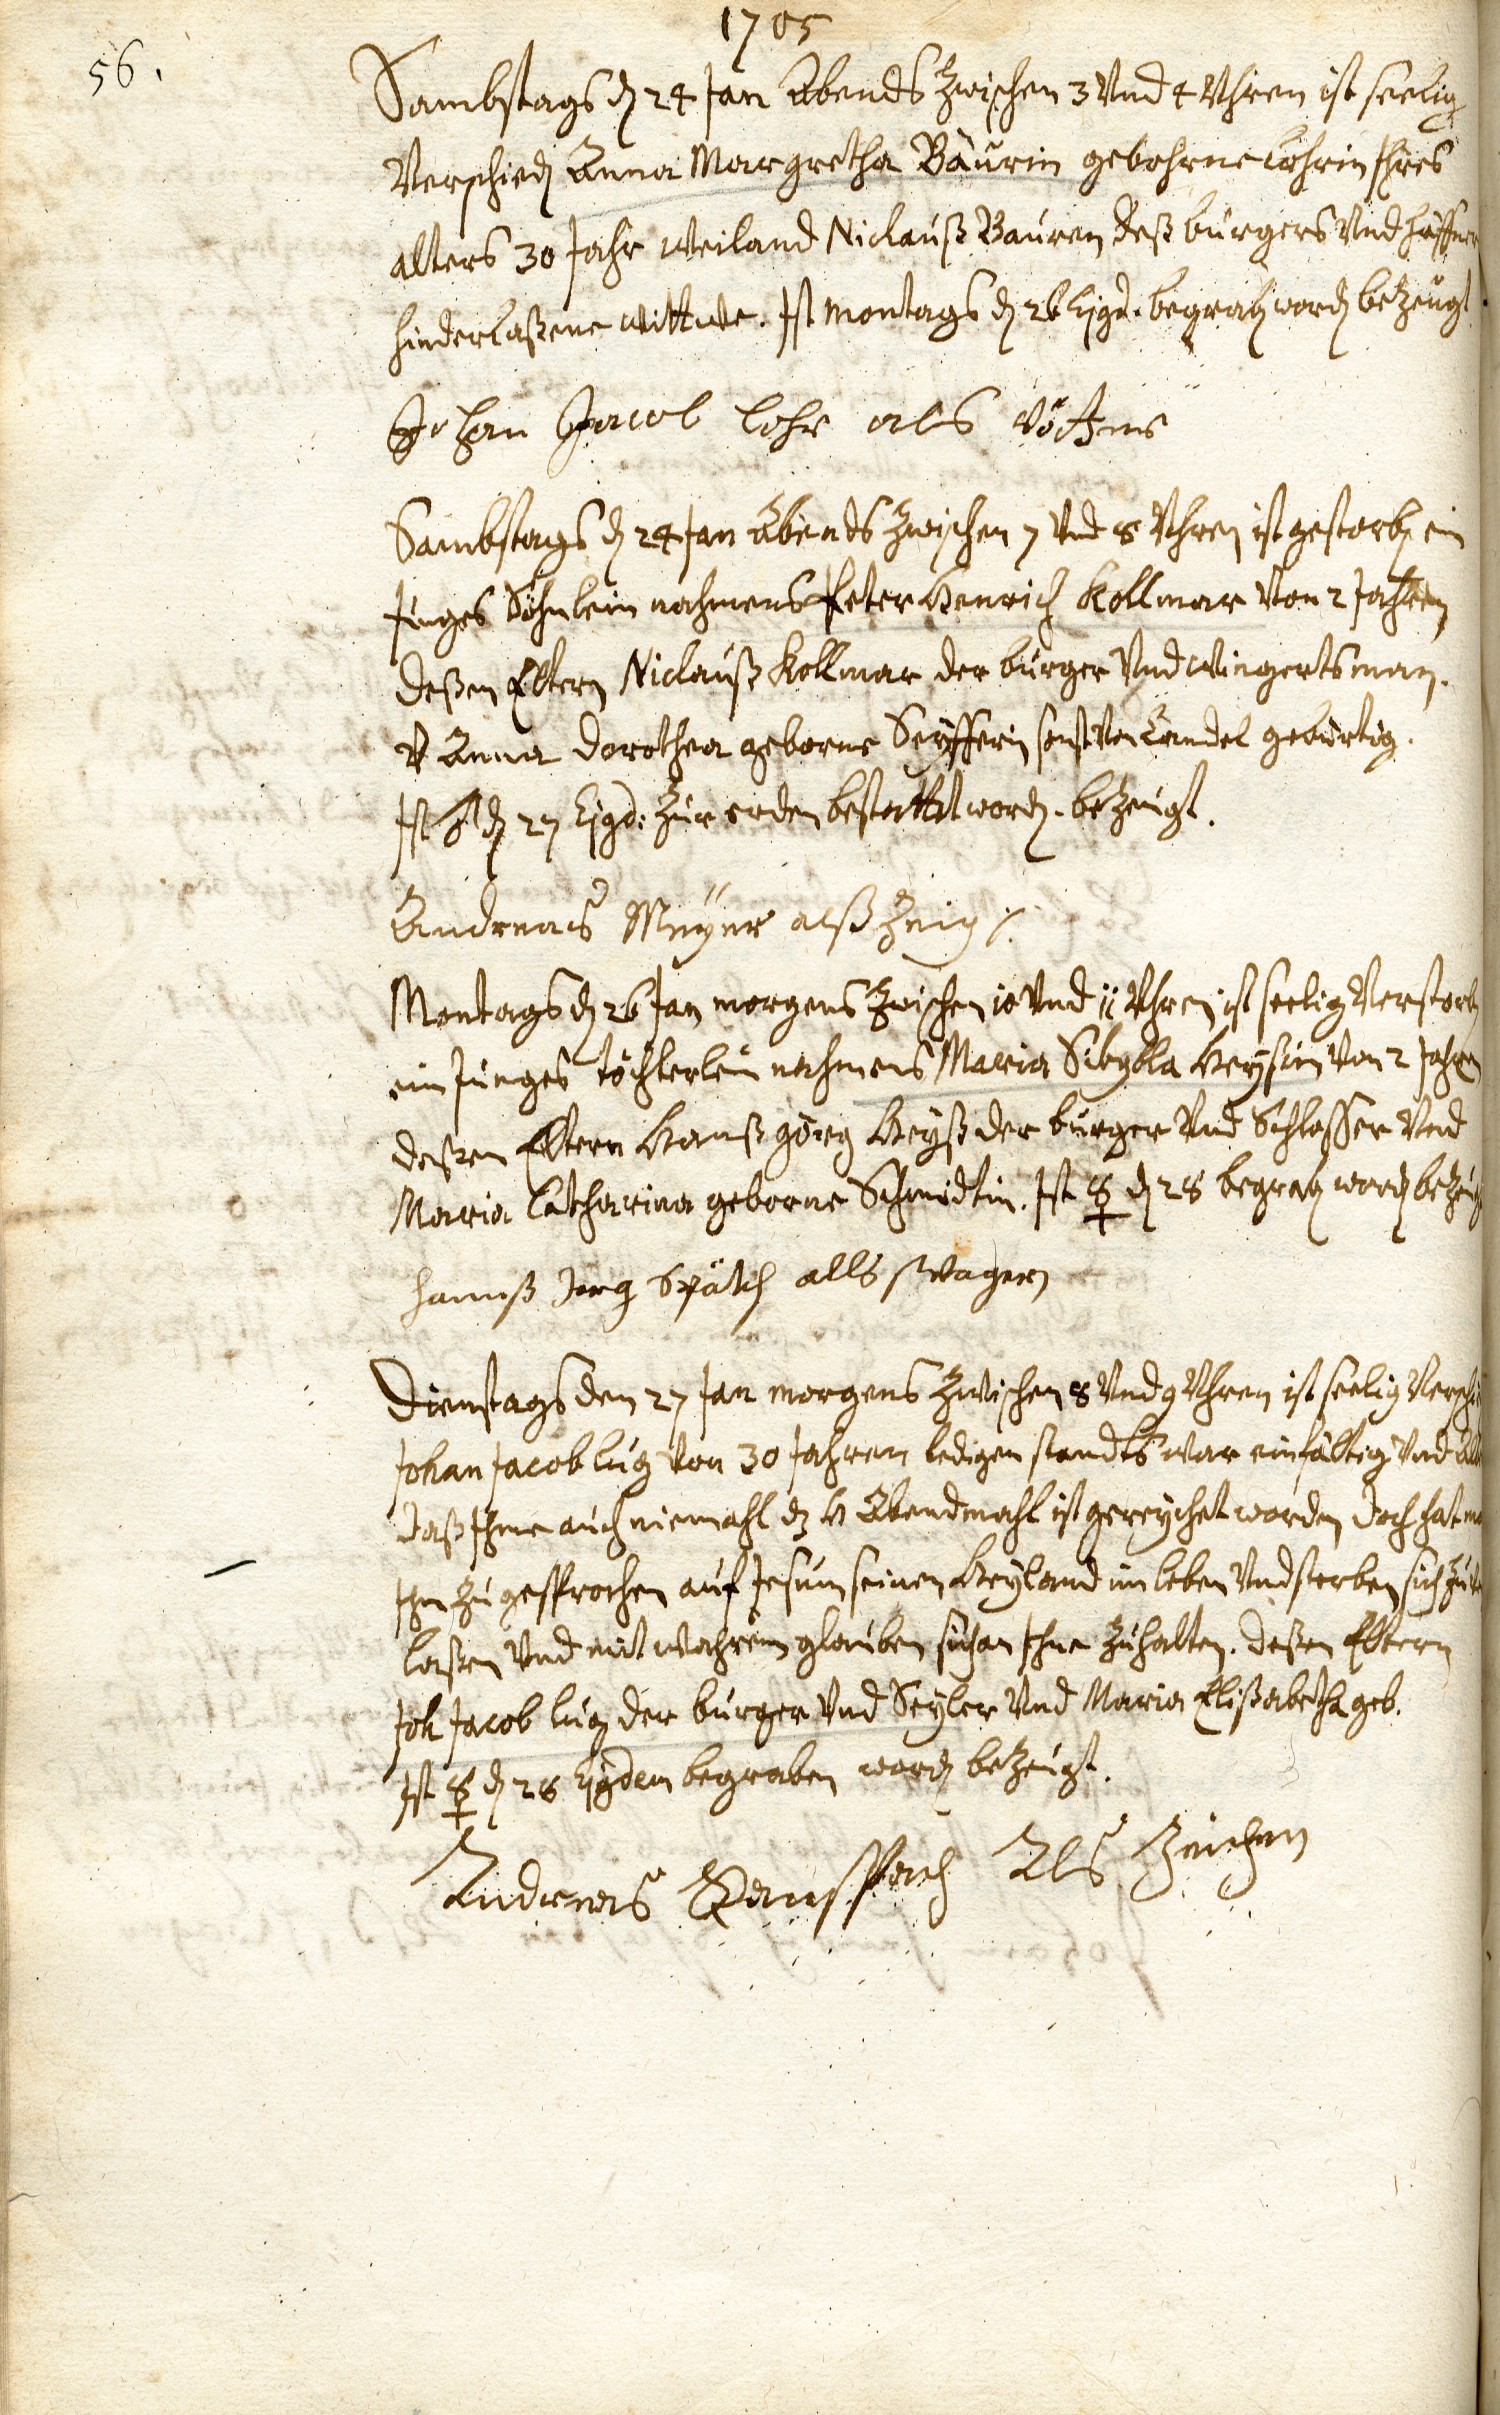 1705
56.
Sambstags dn 24 Jan Abends zwischen 3 Vnd 4 Vhren ist seelig
Verschiedn Anna Margretha Baurin gebohrne Lohrin Ihres
alters 30 Jahr weiland Niclauß Bauren deß burgers Vnd häffner
hinderlaßene wittwe. Ist Montags dn 26 Ejgd. begrabn wordn bezeugt
Johan Jacob Lohr als
Sambstags dn 24 Jan Abends zwischen 7 Vnd 8 Vhren ist gestorbn ein
junges Söhnlein nahmens Peter Henrich Kollmar Von 2 Jahren
deßen Eltern Niclauß Kollmar der burger Vnd wingertsman.
V Anna Dorothea geborne Seyfferin sonst von Candel gebürtig.
Ist ♂ dn 27 Ejgd. zur erden bestattet wordn. bezeugt.
Andreas Meyer alß Zeig
Montags dn 26 Jan morgens zwischen 10 Vnd 11 Vhren ist seelig Verstorbn
ein Junges töchterlein nahmens Maria Sibylla Heyßin Von 2 Jahren
deßen Eltern Hanß görg Heyß der burger Vnd Schlosser Vnd
Maria Catharina geborne Schmidtin. Ist ☿ dn 28 begrabn wordn bezeugt
hannß Jerg Späth alls swagern
Dienstags den 27 Jan morgens zwischen 8 Vnd 9 Vhren ist seelig Verschied
Johan Jacob Lutz Von 30 Jahren ledigen standts war einfältig Vnd
daß Ihme auch niemahl dz H Abendmahl ist gereychet worden doch hat ma
Ihm zu gesprochen auf Jesum seinen Heyland im leben Vnd sterben sich zu
laßen Vnd mit wahrem glauben sich an Ihne zuhalten. deßen Eltern
Joh Jacob Lutz der burger Vnd Seyler Vnd Maria Elisabetha geb.
Ist ☿ dn 28 Ejgdem begraben wordn bezeugt.
Andreas Als Zeichen